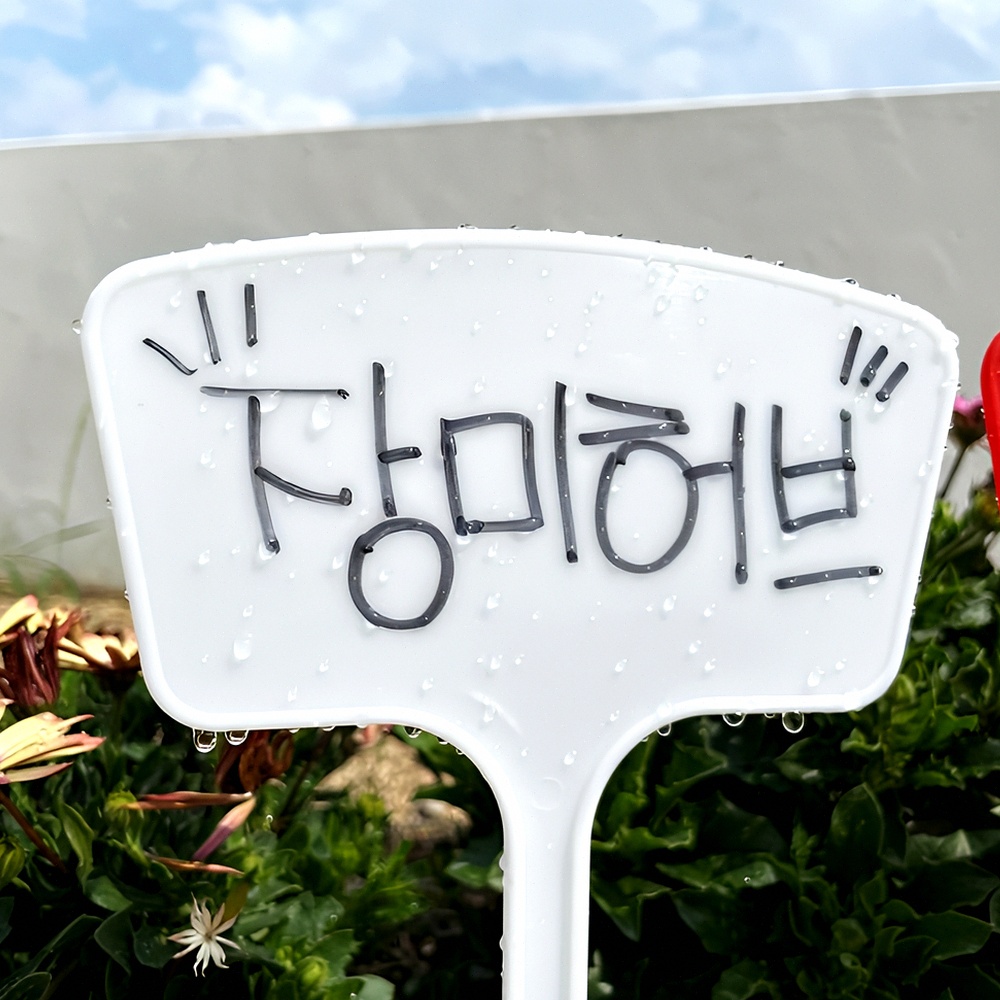 장미허브